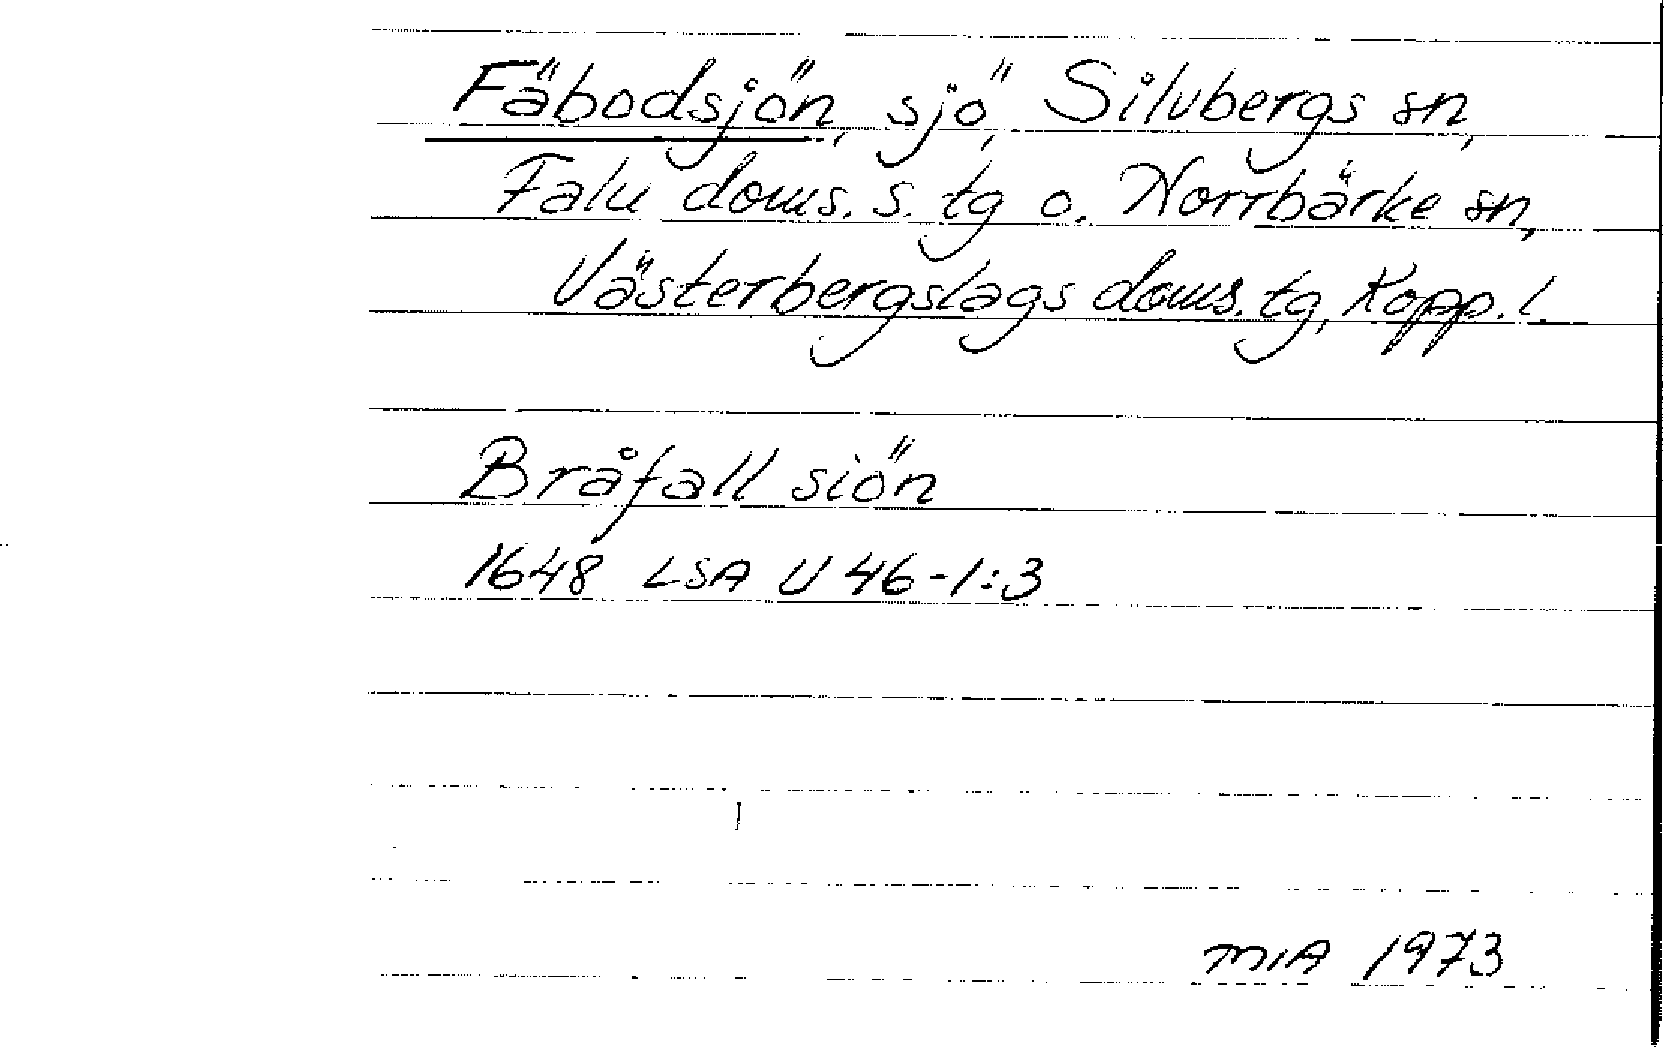 Fäbodsjön, sjö, Silvbergs sn,
Falu doms. s. tg o. Norrbärke sn,
Västerbergslags doms. tg, Kopp. l.
Bråfall siön
1648 LSA U 46-1:3
MIA 1973